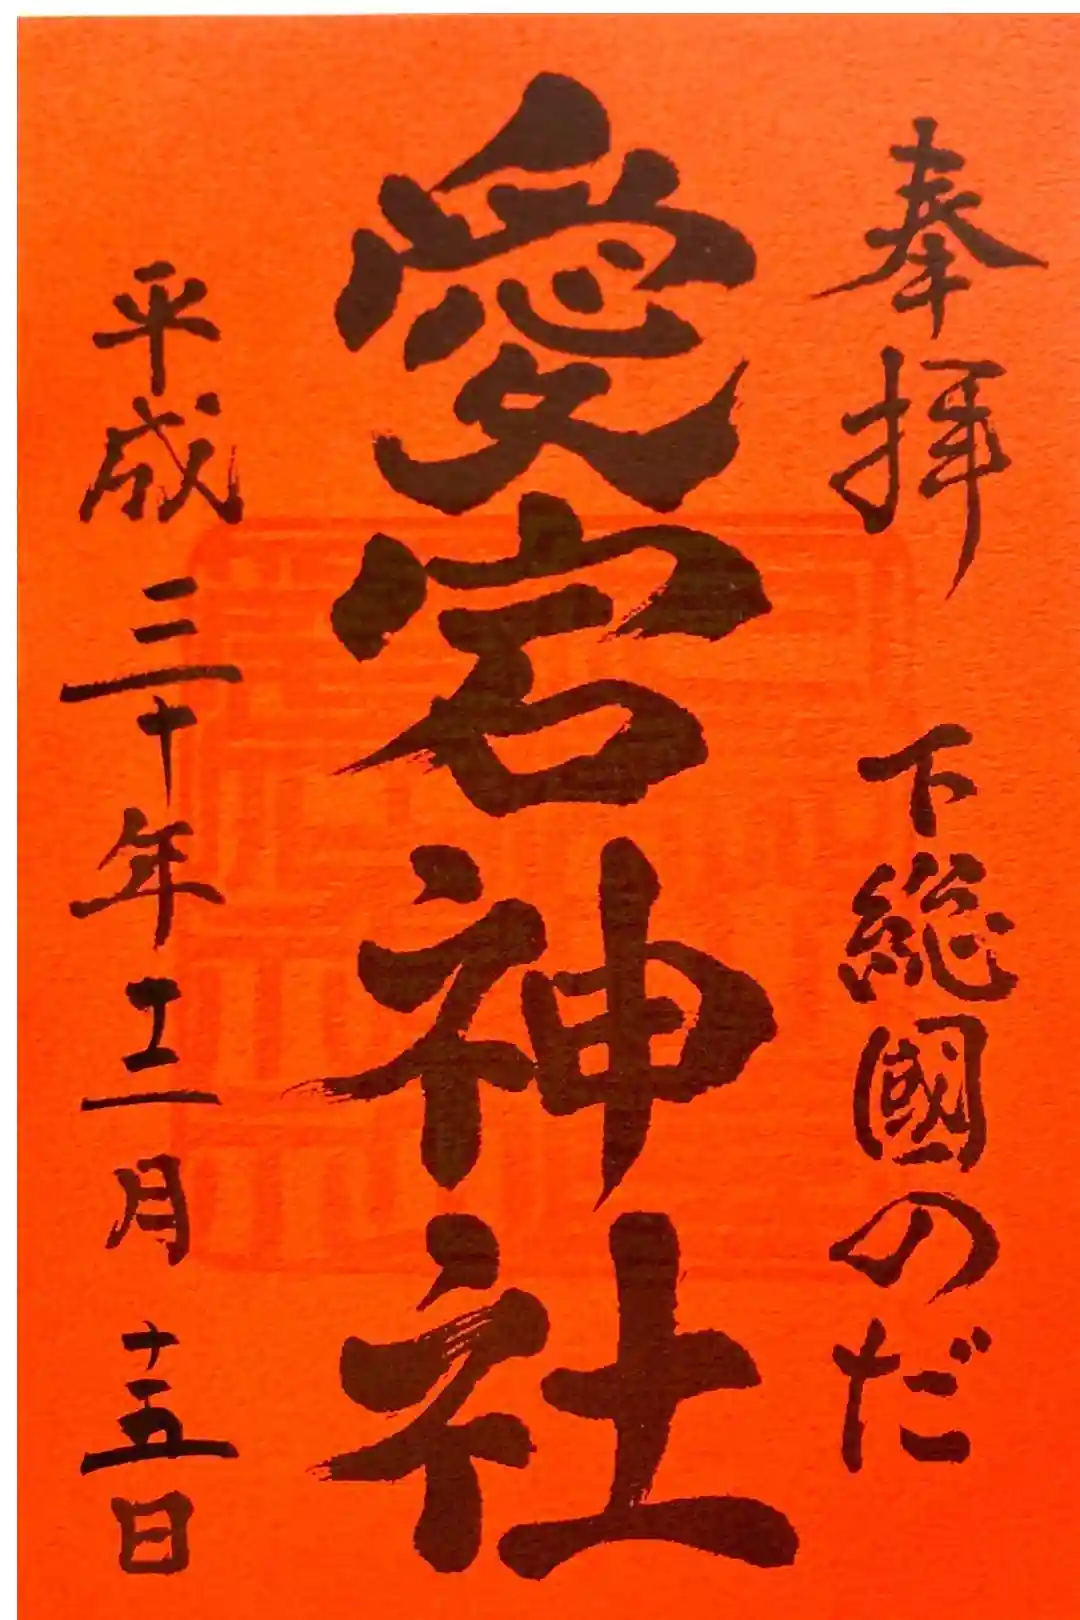 奉拝 下総國のだ
愛宕神社
平成三十年十二月十五日